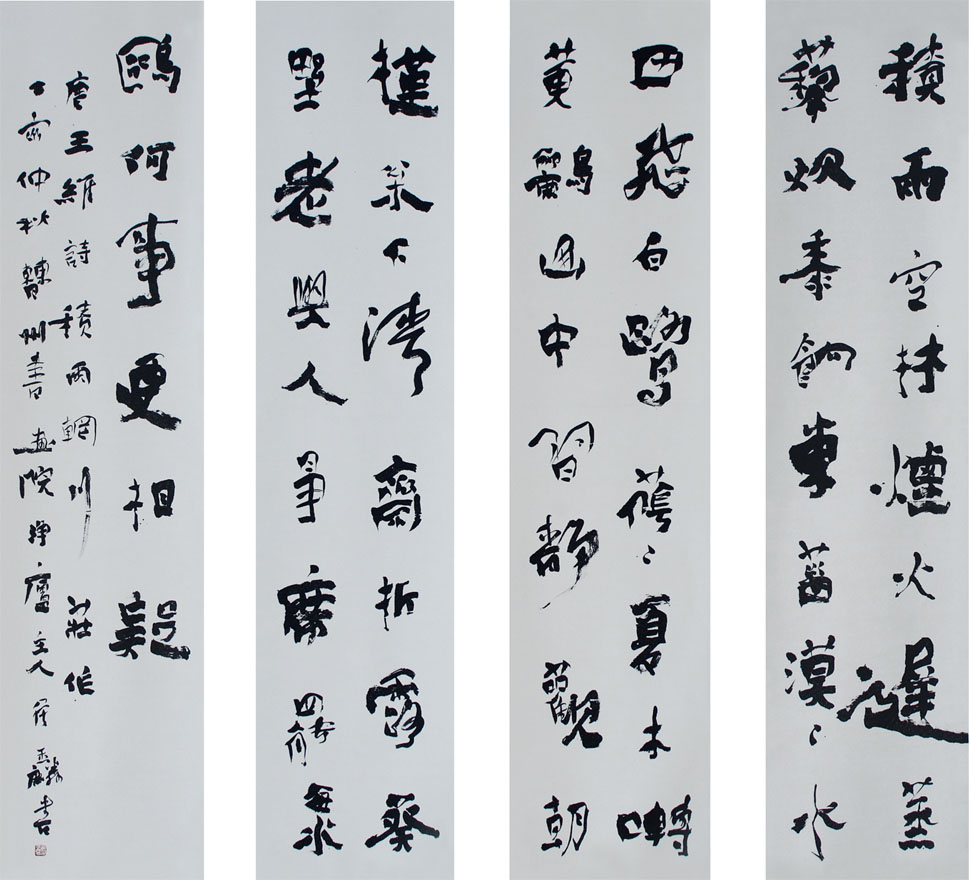 積雨空林煙火遲蒸
藜炊黍餉東菑漠〻水
田飛白鷺蔭〻夏木囀
黃鸝山中習靜觀朝
槿松下清齋折露葵
野老與人爭席罷海
鷗何事更相疑
唐王維詩積雨輞川莊作
丁亥仲秋州書画院廬主人麟書